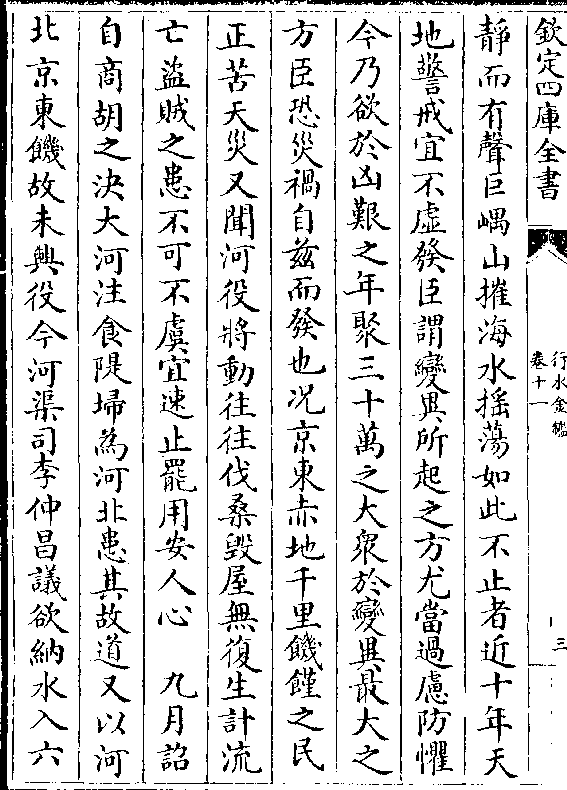 欽定四庫全書
行水金鑑
卷十一
三
靜而有聲巨嵎山摧海水揺蕩如此不止者近十年天
地警戒宜不虛發臣謂變異所起之方尤當過慮防懼
今乃欲於凶艱之年聚三十萬之大衆於變異最大之
方臣恐災禍自兹而發也况京東赤地千里饑饉之民
正苦天災又聞河役將動往往伐桑毀屋無復生計流
亡盜賊之患不可不虞宜速止罷用安人心　九月詔
自商胡之決大河注食隄埽為河北患其故道又以河
北京東饑故未興役今河渠司李仲昌議欲納水入六